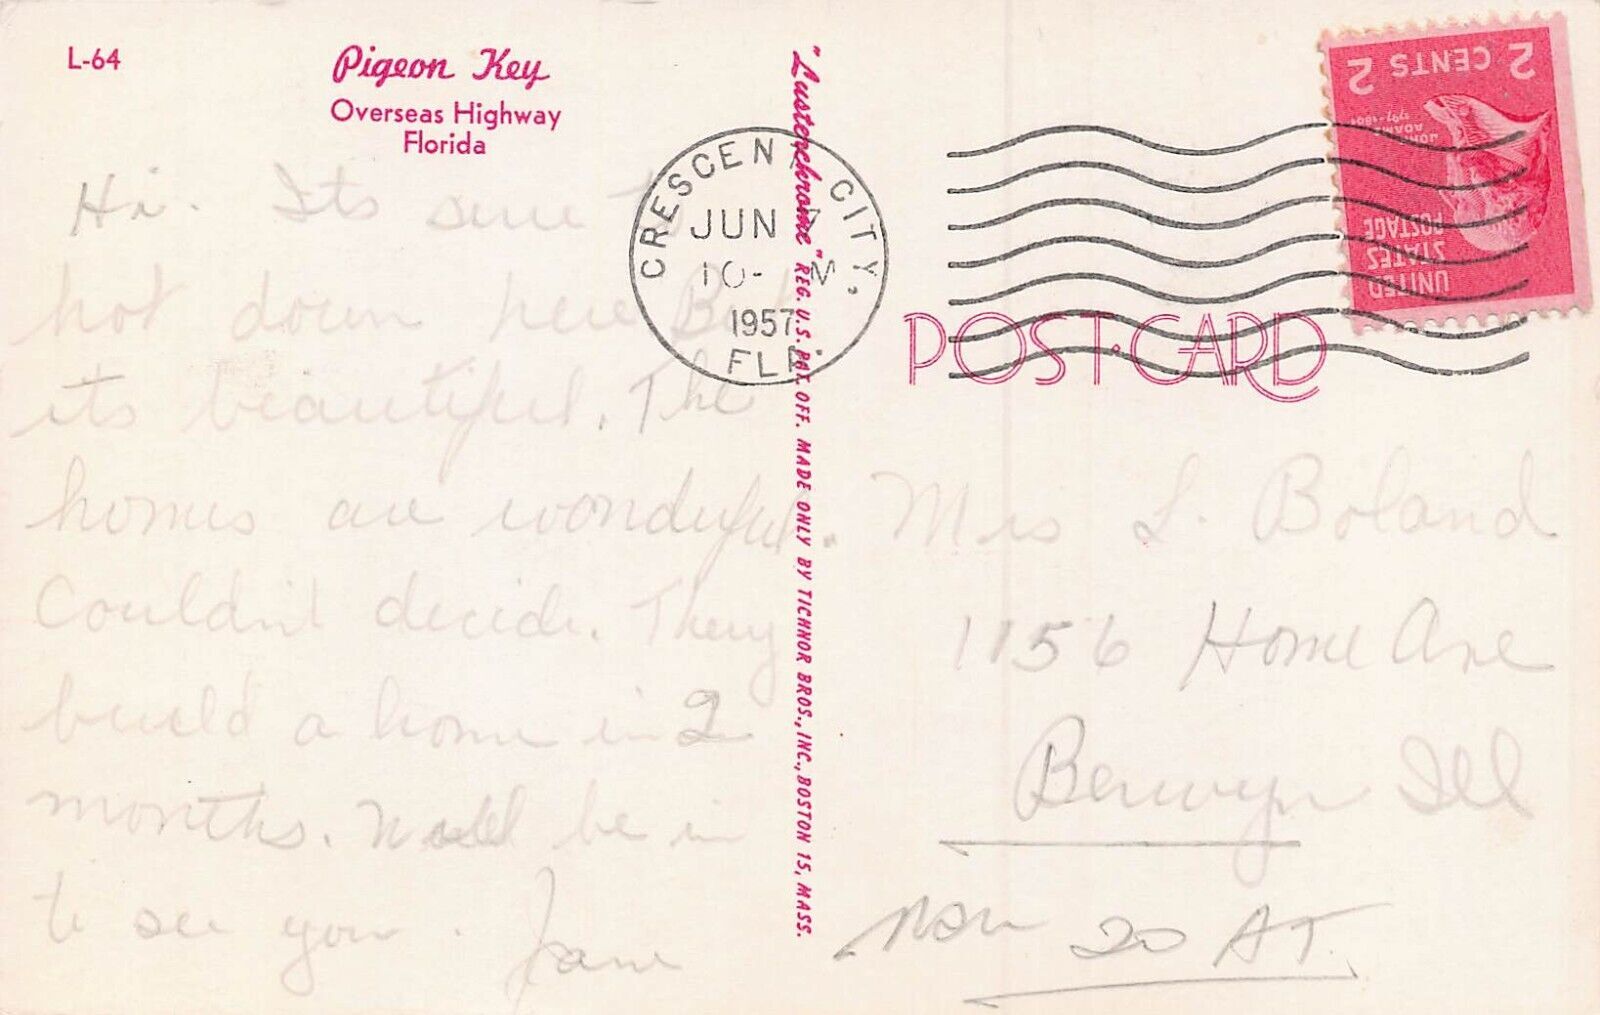 L-64
Pigeon Key
Overseas Highway
Florida
Hi. Its sure
hot down here But
its beautiful. The
homes are wonderful.
Couldn't decide. They
build a home in 2
months. Will be in
to see you.
Jane
"Lusterchrome" REG. U.S. PAT. OFF. MADE ONLY BY TICHNOR BROS., INC., BOSTON 15, MASS.
CRESCENT CITY,
JUN
10- M
1957
FLA.
2 CENTS 2
JOHN ADAMS
1797-1801
UNITED
STATES
POSTAGE
POST·CARD
Mrs L. Boland
1156 Home Ave
Berwyn Ill
20